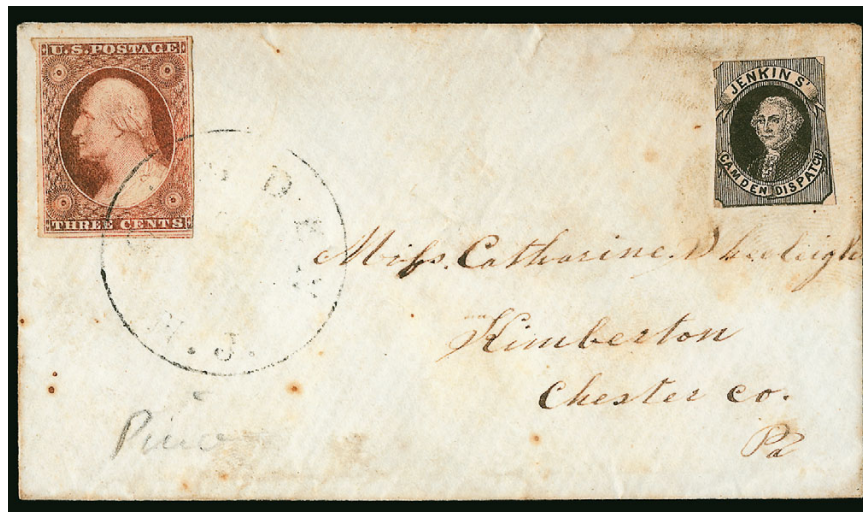 U.S. POSTAGE
THREE CENTS
JENKINS'
CAMDEN DISPATCH
CAMDEN
N.J.
Miss. Catharine
Kimberton
Chester co.
Pa